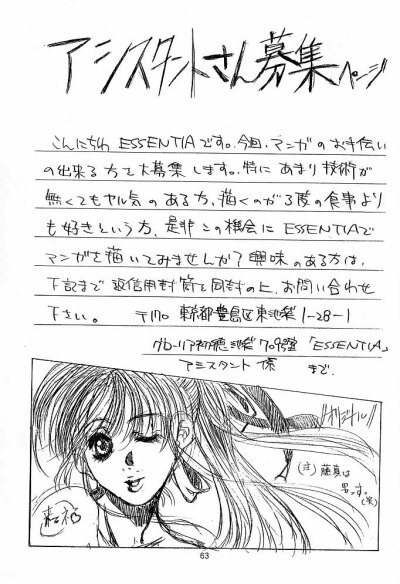 アシスタントさん募集ページ
こんにちわ ESSENTIAです。今回、マンガのお手伝い
の出来る方を大募集します。特にあまり技術が
無くてもヤル気のある方、描くのが3度の食事より
も好きという方、是非この機会に ESSENTIAで
マンガを描いてみませんか？興味のある方は、
下記まで返信用封筒を同封の上、お問い合わせ
下さい。 〒170 東京都豊島区東池袋1-28-1
「ESSENTIA」
アシスタント係 まで。
(注) 藤真は
男っす。(笑)
63